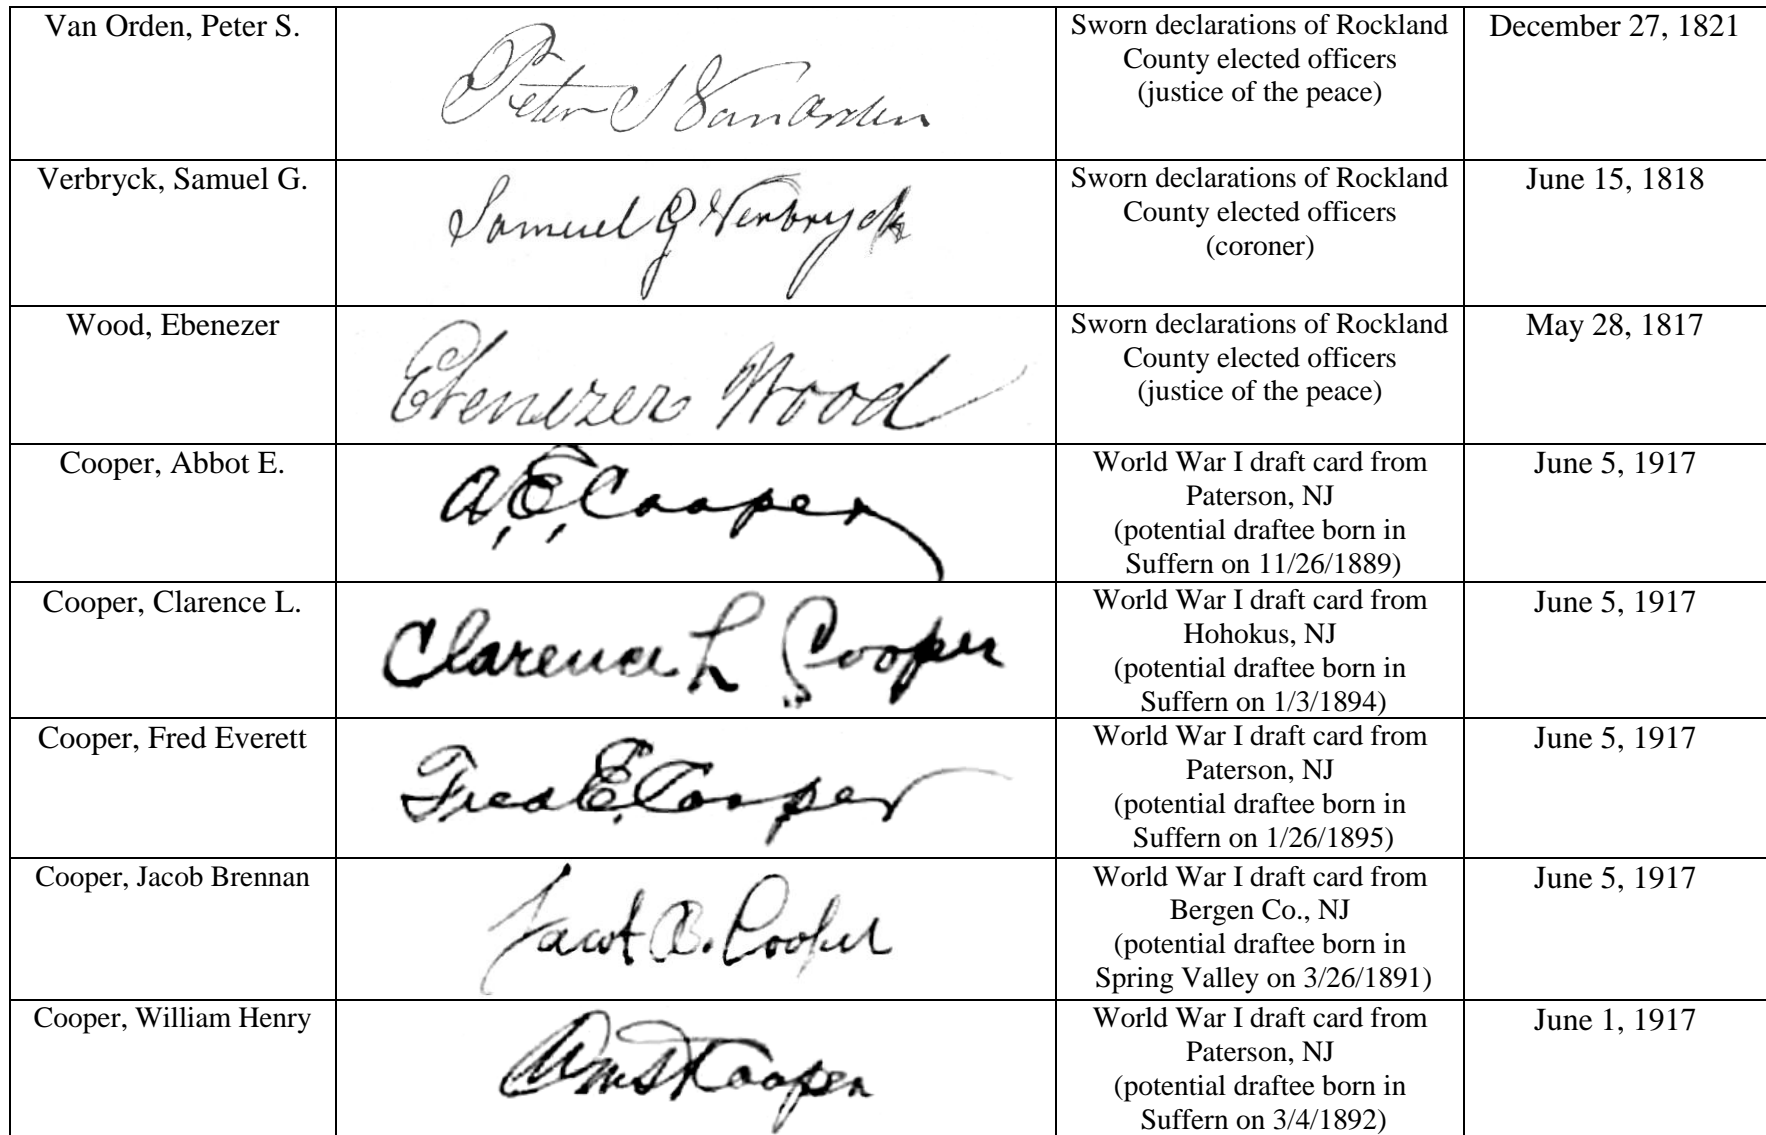 Van Orden, Peter S.
Peter S Van Orden
Sworn declarations of Rockland
County elected officers
(justice of the peace)
December 27, 1821
Verbryck, Samuel G.
Samuel G Verbryck
Sworn declarations of Rockland
County elected officers
(coroner)
June 15, 1818
Wood, Ebenezer
Ebenezer Wood
Sworn declarations of Rockland
County elected officers
(justice of the peace)
May 28, 1817
Cooper, Abbot E.
A, E, Cooper
World War I draft card from
Paterson, NJ
(potential draftee born in
Suffern on 11/26/1889)
June 5, 1917
Cooper, Clarence L.
Clarence L Cooper
World War I draft card from
Hohokus, NJ
(potential draftee born in
Suffern on 1/3/1894)
June 5, 1917
Cooper, Fred Everett
Fred E. Cooper
World War I draft card from
Paterson, NJ
(potential draftee born in
Suffern on 1/26/1895)
June 5, 1917
Cooper, Jacob Brennan
Jacob B. Cooper
World War I draft card from
Bergen Co., NJ
(potential draftee born in
Spring Valley on 3/26/1891)
June 5, 1917
Cooper, William Henry
Wm H Cooper
World War I draft card from
Paterson, NJ
(potential draftee born in
Suffern on 3/4/1892)
June 1, 1917